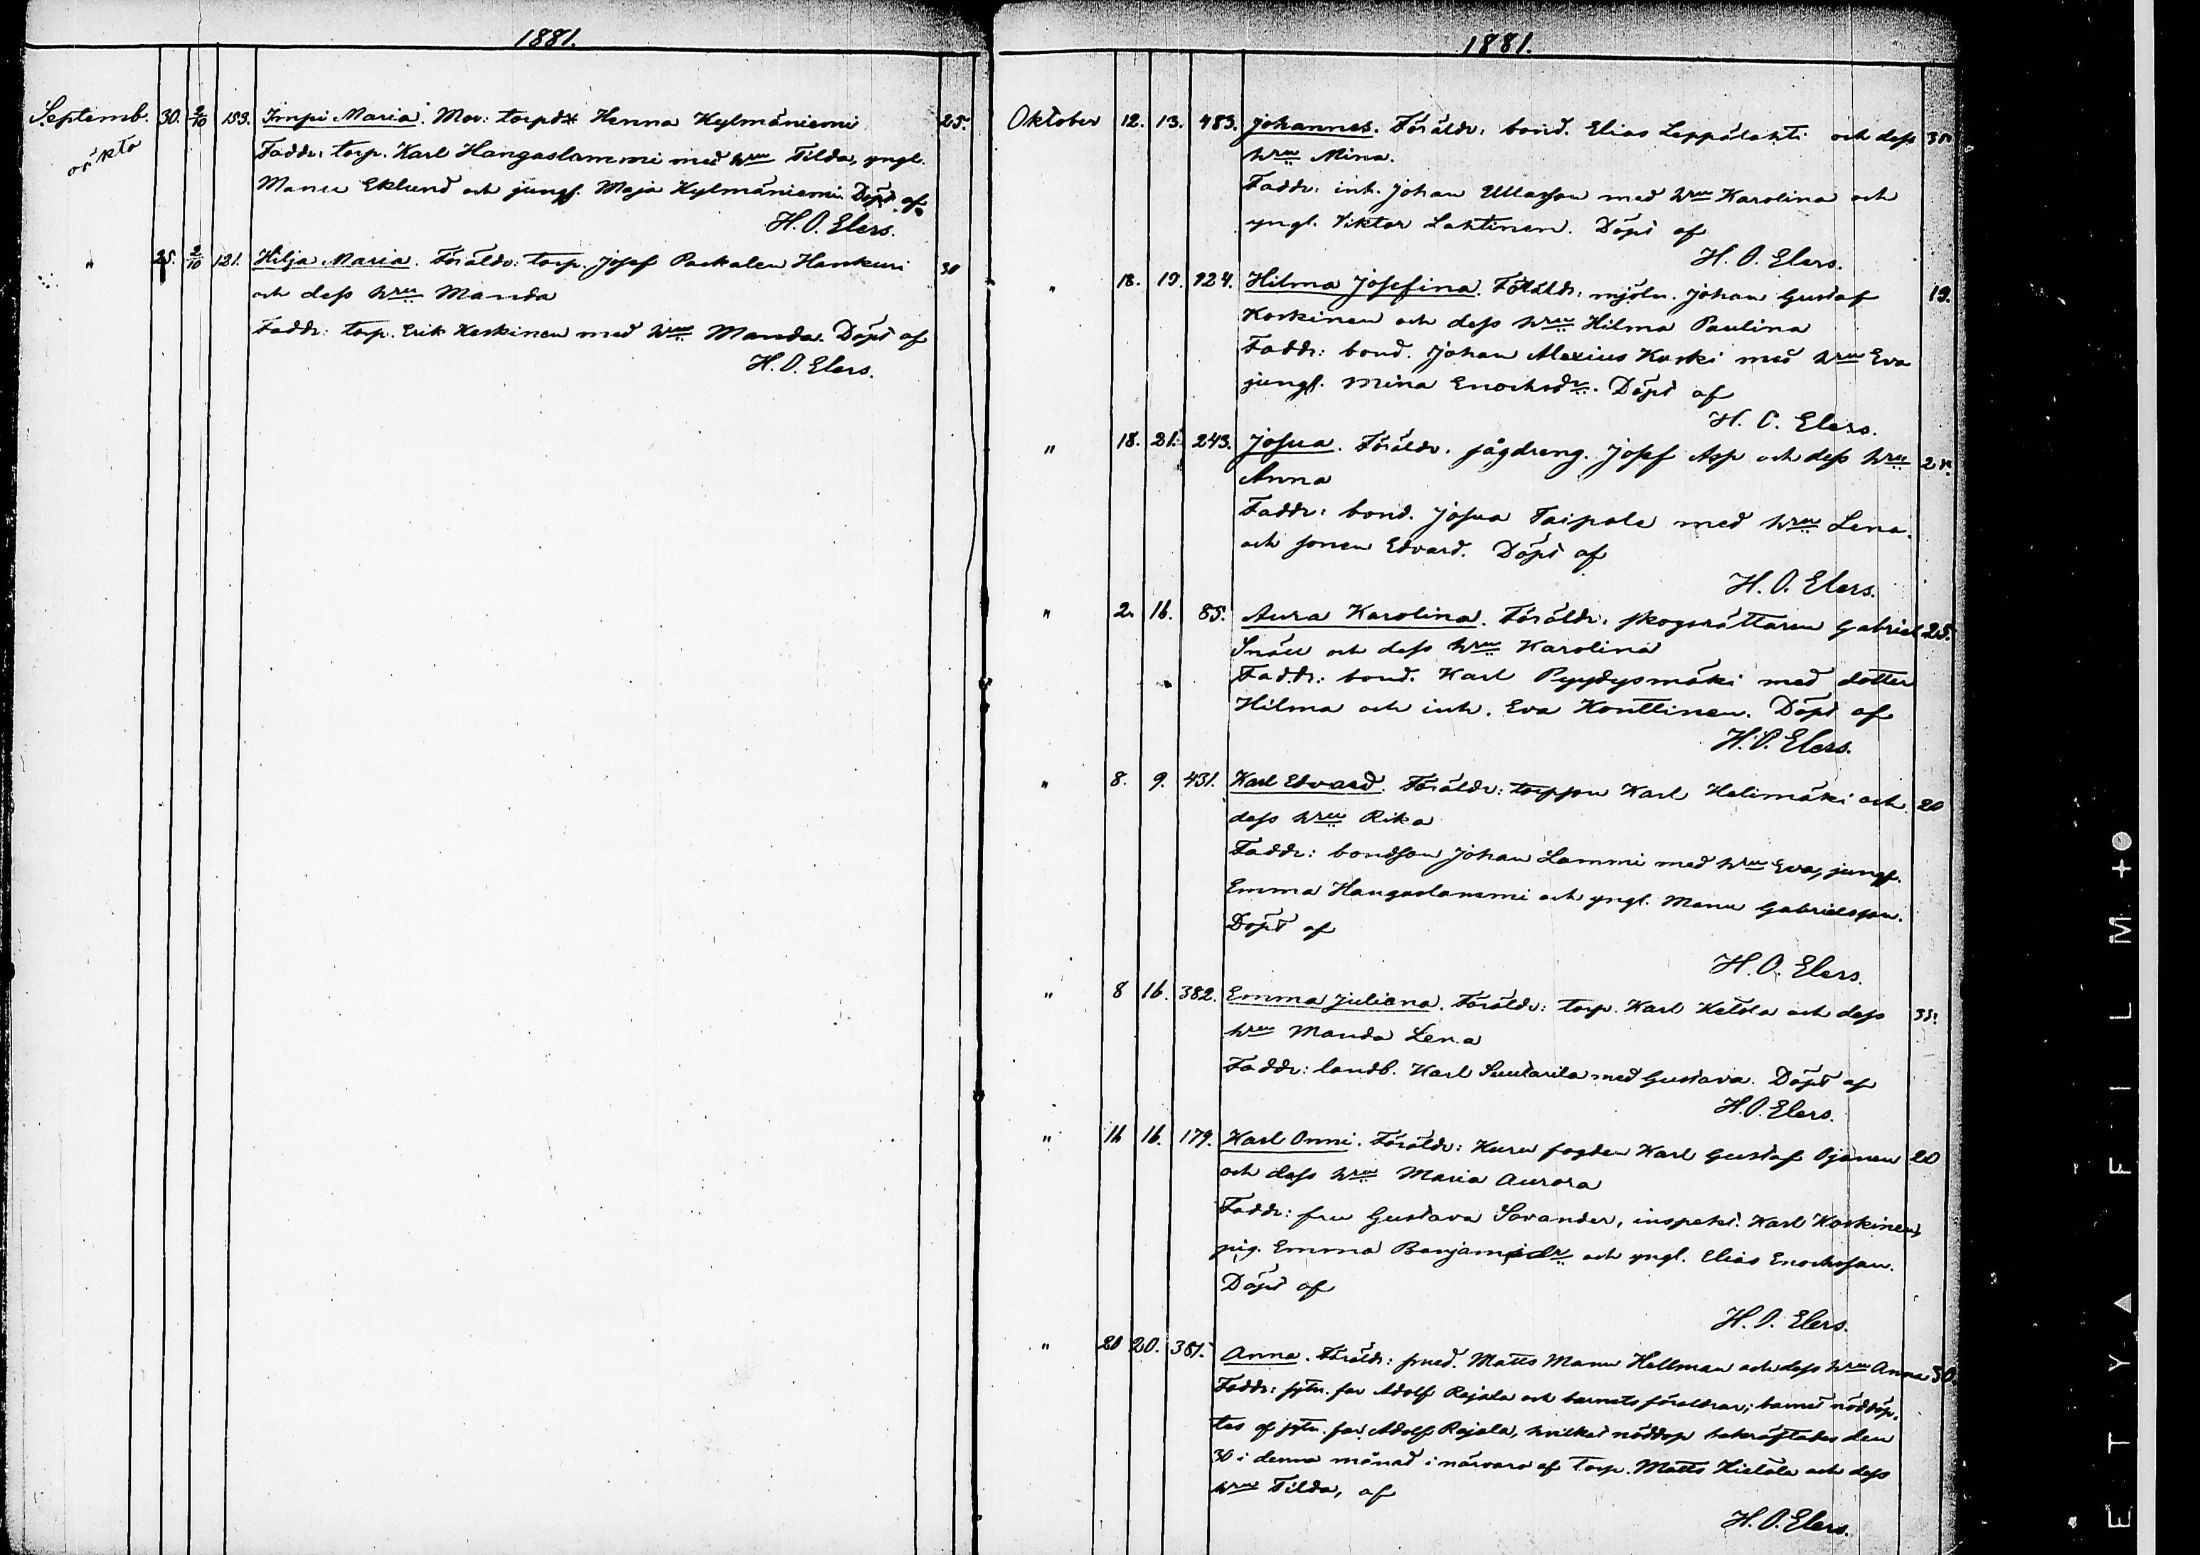 1881.
Septemb. 30. 2/10 153. Impi Maria. Mor: torpd. Henna Hylmäniemi 25.
oäkta Faddr: torp. Karl Hangaslammi med hru Tilda, yngl.
Eklund och jungf. Maja Hylmäniemi. Döpt af
H. O. Elers.
" 25. 2/10 121. Hilja Maria. Föräldr: torp. Josef Hankuri 30
och dess hru Manda
Faddr: torp. Erik Keskinen med hru Manda. Döpt af
H. O. Elers.
1881.
Oktober 12. 13. 483. Johannes. Föräldr: bond. Elias Leppälahti och dess
hru Mina.
Faddr: inh. Johan med hru Karolina och
yngl. Viktor Lahtinen. Döpt af
H. O. Elers.
" 18. 19. 124. Hilma Josefina. Föräldr: mjöln. Johan Gustaf 19.
Koskinen och dess hru Hilma Paulina
Faddr: bond. Johan Alexius Koski med hru Eva
jungf. Mina Enochsdr. Döpt af
H. O. Elers.
" 18. 21. 243. Josua. Föräldr. sågdreng. Josef Asp och dess hru
Anna
Faddr: bond. Josua Taipale med hru Lena
och sonen Edvard. Döpt af
H. O. Elers.
" 2. 16. 85. Aura Karolina. Föräldr. skogsrättaren Gabriel 25.
Snäll och dess hru Karolina
Faddr: bond. Karl Pyydysmäki med dotter
Hilma och inh. Eva Konttinen. Döpt af
H. O. Elers.
" 8. 9. 431. Karl Edvard. Föräldr: torpson Karl Helimäki och 20
dess hru Rika
Faddr: bondson Johan Lammi med hru Eva, jungf.
Emma Hangaslammi och yngl. Manu Gabrielsson.
Döpt af
H. O. Elers.
" 8 16. 382. Emma Juliana. Föräldr: torp. Karl Ketola och dess
hru Manda Lena
Faddr: landb. Karl Suutarila med Gustava. Döpt af
H. O. Elers.
" 16 16. 179. Karl Onni. Föräldr: Kuru fogden Karl Gustaf Ojanen 20
och dess hru Maria Aurora
Faddr: fru Gustava Savander, inspekt. Karl Koskinen,
pig. Emma Benjamsdr och yngl. Elias Enochsson.
Döpt af
H. O. Elers.
" 20 20. 381. Anna. Föräldr: smed. Matts Manu Hellman och dess hru Anna 30.
Faddr: sytn. far Adolf Rajala och barnets föräldrar; barnet nöddöp-
tes af sytn. far Adolf Rajala, hvilket nöddop bekräftades den
30 i denna månad i närvaro af torp. Matts Hietala och dess
hru Tilda, af
H. O. Elers.
ETYAFILM